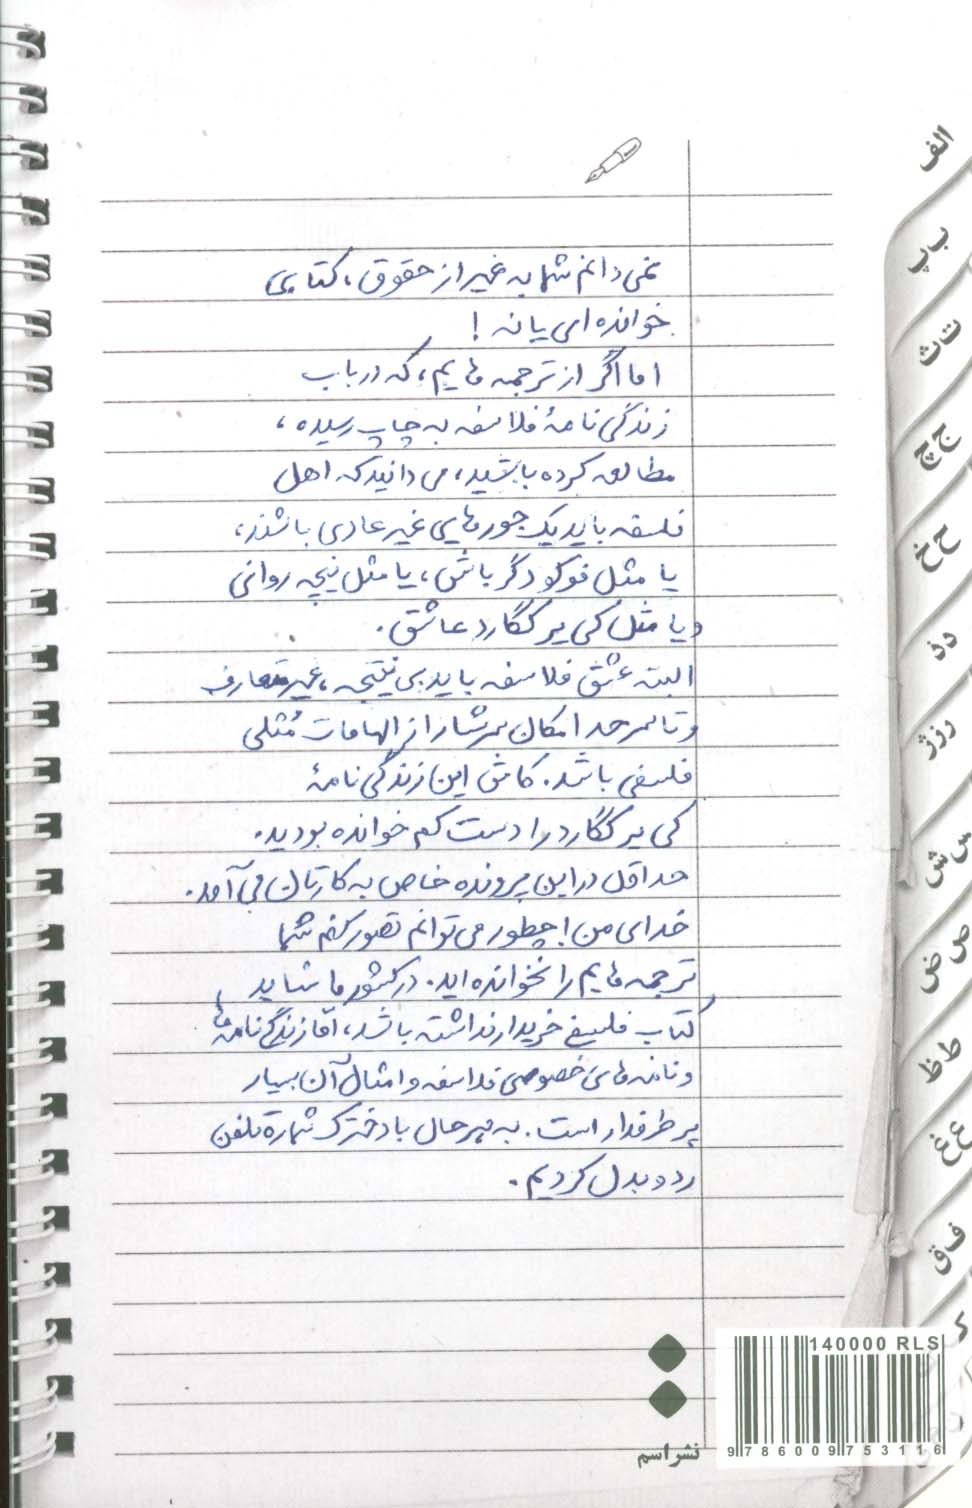 نمی‌دانم شما به غیر از حقوق، کتابی
خوانده‌ای یا نه!
اما اگر از ترجمه‌هایم، که در باب
زندگی‌نامهٔ فلاسفه به چاپ رسیده،
مطالعه کرده باشید، می‌دانید که اهل
فلسفه باید یک جورهایی غیرعادی باشند،
یا مثل فوکو دگرباش، یا مثل نیچه روانی
و یا مثل کی‌یرکگارد عاشق.
البته عشق فلاسفه باید بی‌نتیجه، غیرمتعارف
و تا سرحد امکان سرشار از الهامات مُثلی
فلسفی باشد. کاش این زندگی‌نامهٔ
کی‌یرکگارد را دست کم خوانده بودید.
حداقل در این پرونده خاص به کارتان می‌آمد.
خدای من! چطور می‌توانم تصور کنم شما
ترجمه‌هایم را نخوانده‌اید. در کشور ما شاید
کتاب فلسفی خریدار نداشته باشد، امّا زندگی‌نامه‌ها،
و نامه‌های خصوصی فلاسفه و امثال آن بسیار
پرطرفدار است. به هر حال با دخترک شمارهٔ تلفن
رد و بدل کردیم.
الف
ب پ
ت ث
ج چ
ح خ
د ذ
ر ز ژ
س ش
ص ض
ط ظ
ع غ
ف ق
نشر اسم
140000 RLS
9786009753116